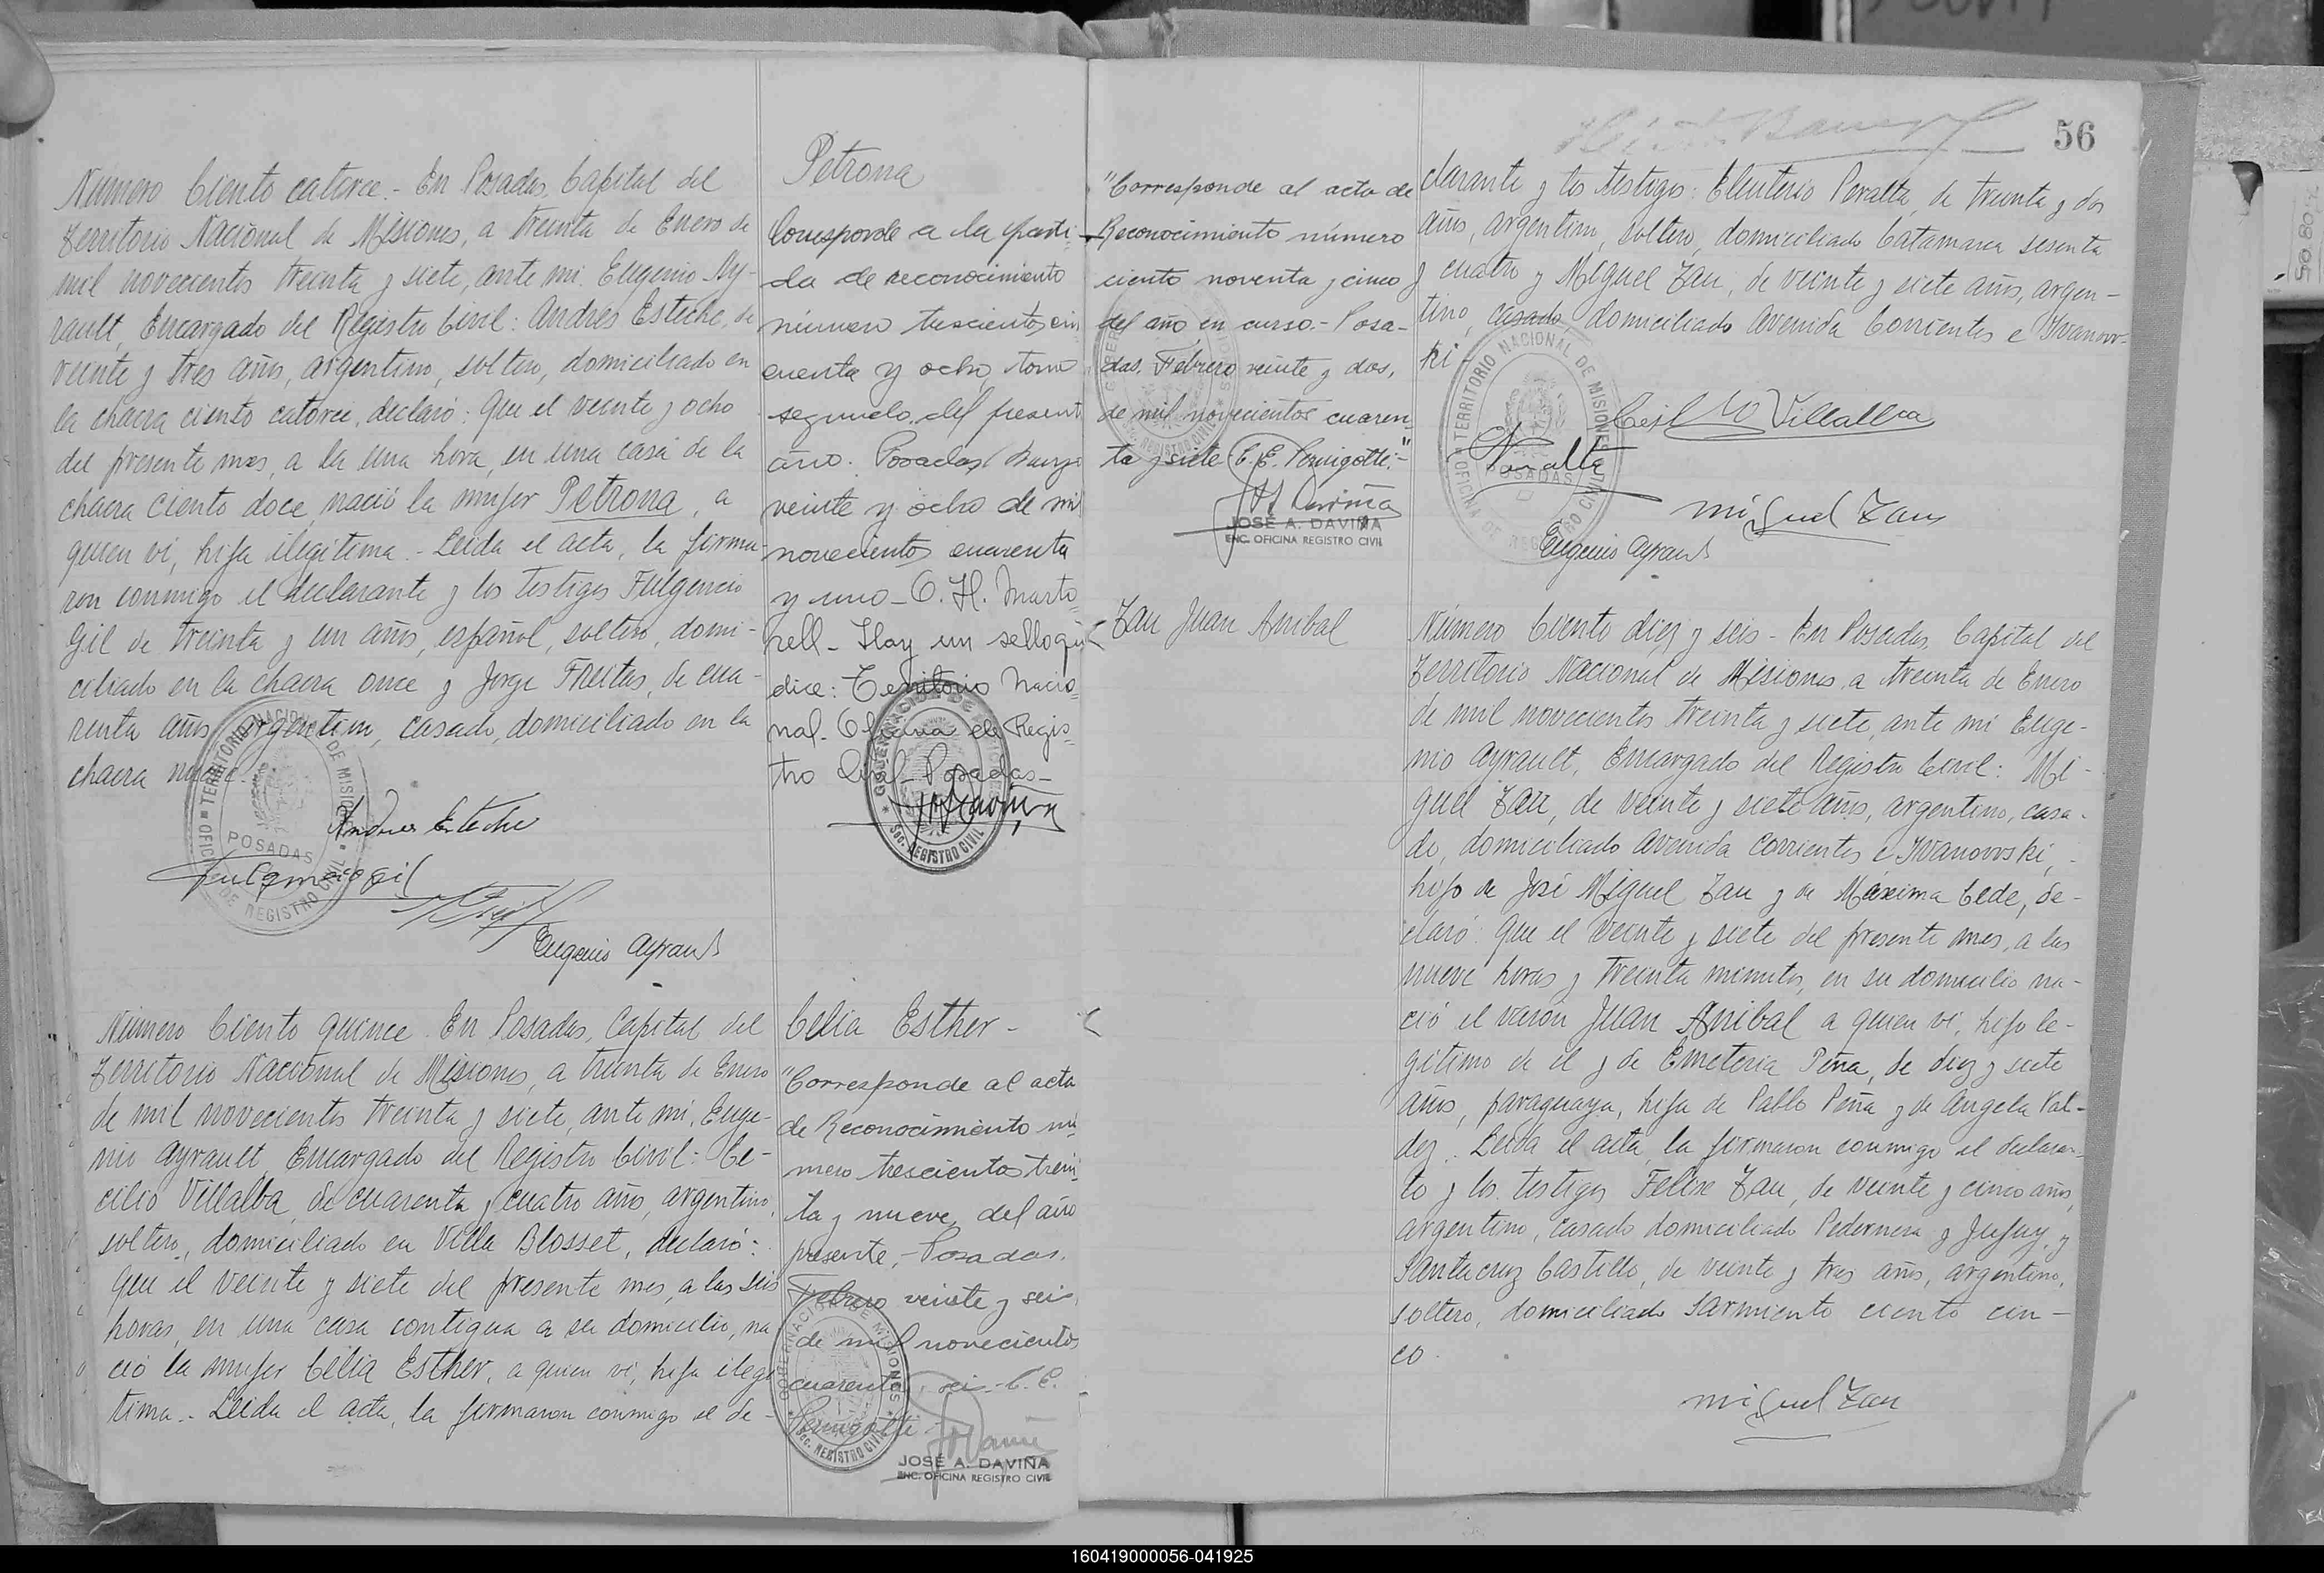 Número Ciento catorce.- En Posadas, Capital del
Territorio Nacional de Misiones, a treinta de Enero de
mil novecientos treinta y siete, ante mi Eugenio Ay-
rault, Encargado del Registro Civil: Andres Esteche, de
veinte y tres años, argentino, soltero, domiciliado en
la chacra ciento catorce, declaró: Que el veinte y ocho
del presente mes, a la una hora, en una casa de la
chacra ciento doce nació la mujer Petrona, a
quien vi, hija ilegitima.- Leida el acta, la firma-
ron conmigo el declarante y los testigos Fulgencio
Gil de treinta y un años, español, soltero, domi-
ciliado en la chacra once y Jorge Freitas, de cua-
renta años argentino, casado, domiciliado en la
chacra nueve.
TERRITORIO NACIONAL DE MISIONES
POSADAS
OFICINA DE REGISTRO CIVIL
Andres Esteche
Fulgencio Gil
Eugenio Ayrault
Petrona
Corresponde a la parti-
da de reconocimiento
número trescientos cin
cuenta y ocho, tomo
segundo del present
año. Posadas, Marzo
veinte y ocho de mil
novecientos cuarenta
y uno- O. H. Marto-
rell- Hay un sello que
dice: Territorio Nacio-
nal- Oficina de Regis-
tro Civil- Posadas-
GOBERNACION DE MISIONES
Sec. REGISTRO CIVIL
Número Ciento quince. En Posadas, Capital del
Territorio Nacional de Misiones, a treinta de Enero
de mil novecientos treinta y siete, ante mi, Euge-
nio Ayrault, Encargado del Registro Civil: Ce-
cilio Villalba, de cuarenta y cuatro años, argentino,
soltero, domiciliado en Villa Blosset, declaró:
Que el veinte y siete del presente mes, a las seis
horas, en una casa contigua a su domicilio, na
ció la mujer Celia Esther, a quien vi, hija ilegi
tima.- Leida el acta, la firmaron conmigo el de-
Celia Esther-
"Corresponde al acta
de Reconocimiento nú
mero trescientos trein
ta y nueve, del año
presente,- Posadas,
Febrero veinte y seis,
de mil novecientos
cuarenta y seis.- C. E.
Pernigotti.-
GOBERNACION DE MISIONES
Sec. REGISTRO CIVIL
JOSÉ A. DAVIÑA
ENC. OFICINA REGISTRO CIVIL
56
"Corresponde al acta de
Reconocimiento número
ciento noventa y cinco
del año en curso.- Posa-
das, Febrero veinte y dos,
de mil novecientos cuaren-
ta y siete C. E. Pernigotti.-"
JOSÉ A. DAVIÑA
ENC. OFICINA REGISTRO CIVIL
clarante y los testigos: Eleuterio Peralta, de treinta y dos
años, argentino, soltero, domiciliado Catamarca sesenta
y cuatro y Miguel Zau, de veinte y siete años, argen-
tino, casado, domiciliado Avenida Corrientes e Ivanovs-
ki
TERRITORIO NACIONAL DE MISIONES
POSADAS
OFICINA DE REGISTRO CIVIL
Villalba
Peralta
Miguel Zau
Eugenio Ayrault
Zau Juan Anibal
Número Ciento diez y seis- En Posadas, Capital del
Territorio Nacional de Misiones, a treinta de Enero
de mil novecientos treinta y siete, ante mi Euge-
nio Ayrault, Encargado del Registro Civil: Mi-
guel Zau, de veinte y siete años, argentino, casa-
do, domiciliado Avenida Corrientes e Ivanovski,
hijo de José Miguel Zau y de Máxima Cede, de-
claró: Que el veinte y siete del presente mes, a las
nueve horas y treinta minutos, en su domicilio na-
ció el varón Juan Anibal a quien vi, hijo le-
gitimo de él y de Emeteria Peña, de diez y siete
años, paraguaya, hija de Pablo Peña y de Angela Val-
dez.- Leida el acta, la firmaron conmigo el declaran-
te y los testigos Felix Zau, de veinte y cinco años,
argentino, casado domiciliado Pedernera y Jujuy, y
Santacruz Castillo, de veinte y tres años, argentino,
soltero, domiciliado Sarmiento ciento cin-
co.
Miguel Zau
160419000056-041925